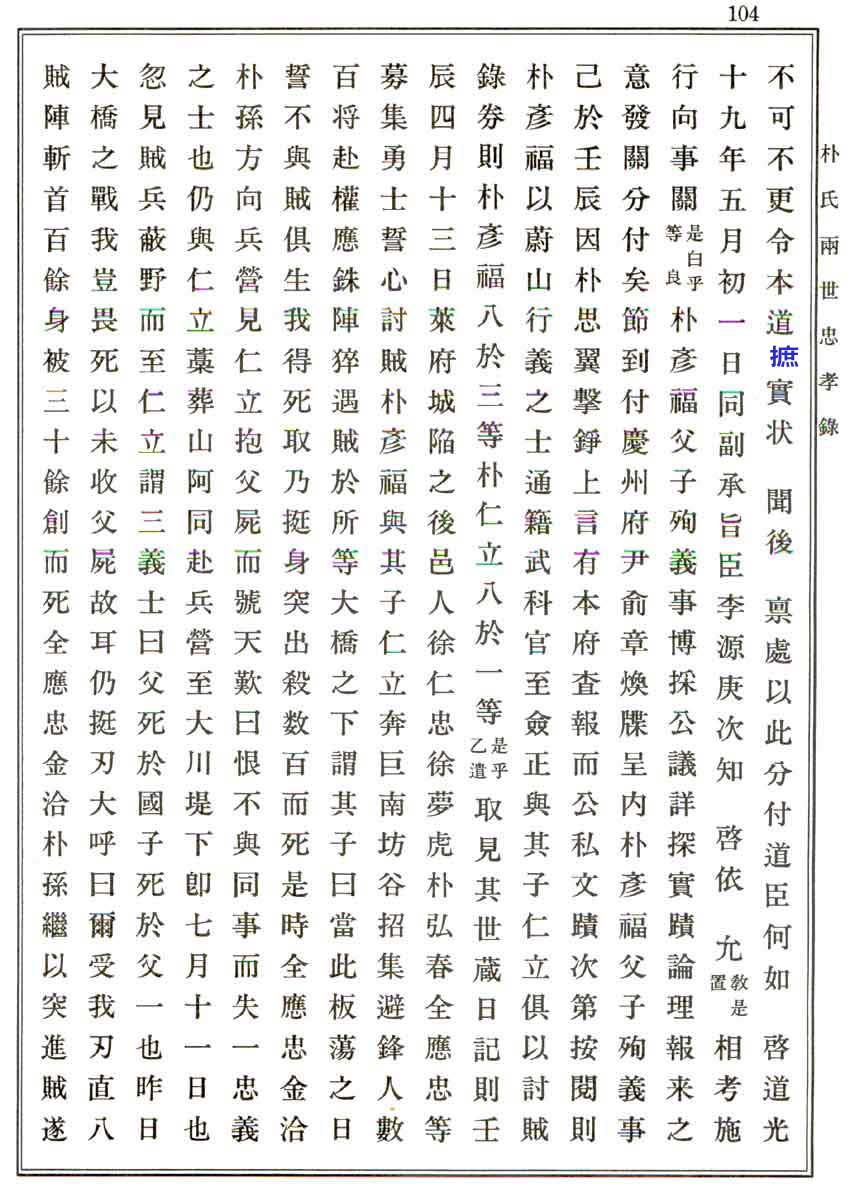 104
朴氏兩世忠孝錄
不可不更令本道摭實状　聞後　禀處以此分付道臣何如　啓道光
十九年五月初一日同副承旨臣李源庚次知　啓依　允敎是置相考施
行向事關是白乎等良朴彥福父子殉義事博採公議詳探實蹟論理報来之
意發關分付矣節到付慶州府尹俞章煥牒呈内朴彥福父子殉義事
己於壬辰因朴思翼擊錚上言有本府査報而公私文蹟次第按閱則
朴彥福以蔚山行義之士通籍武科官至僉正與其子仁立俱以討賊
錄券則朴彥福八於三等朴仁立八於一等是乎乙遣取見其世蔵日記則壬
辰四月十三日萊府城陷之後邑人徐仁忠徐夢虎朴弘春全應忠等
募集勇士誓心討賊朴彥福與其子仁立奔巨南坊谷招集避鋒人數
百将赴權應銖陣猝遇賊於所等大橋之下謂其子曰當此板蕩之日
誓不與賊俱生我得死取乃挺身突出殺数百而死是時全應忠金洽
朴孫方向兵營見仁立抱父屍而號天歎曰恨不與同事而失一忠義
之士也仍與仁立藁葬山阿同赴兵營至大川堤下卽七月十一日也
忽見賊兵蔽野而至仁立謂三義士曰父死於國子死於父一也昨日
大橋之戰我豈畏死以未收父屍故耳仍挺刃大呼曰爾受我刃直八
賊陣斬首百餘身被三十餘創而死全應忠金洽朴孫繼以突進賊遂